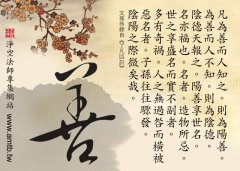 凡為善而人知之。則為陽善。
為善而人不知。則為陰德。
陰德天報之。陽善享世名。
名亦福也。名者。造物所忌。
世之享盛名而實不副者。
多有奇禍。人之無過咎而橫被
惡名者。子孫往往驟發。
陰陽之際微矣哉。
文章恭錄自《了凡四訓》
善
淨空法師專集網站
www.amtb.tw